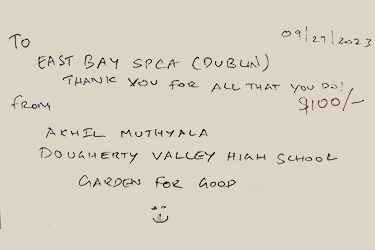 09/27/2023
To
EAST BAY SPCA (DUBLIN)
THANK YOU FOR ALL THAT YOU DO!
from
$100/-
AKHIL MUTHYALA
DOUGHERTY VALLEY HIGH SCHOOL
GARDEN FOR GOOD